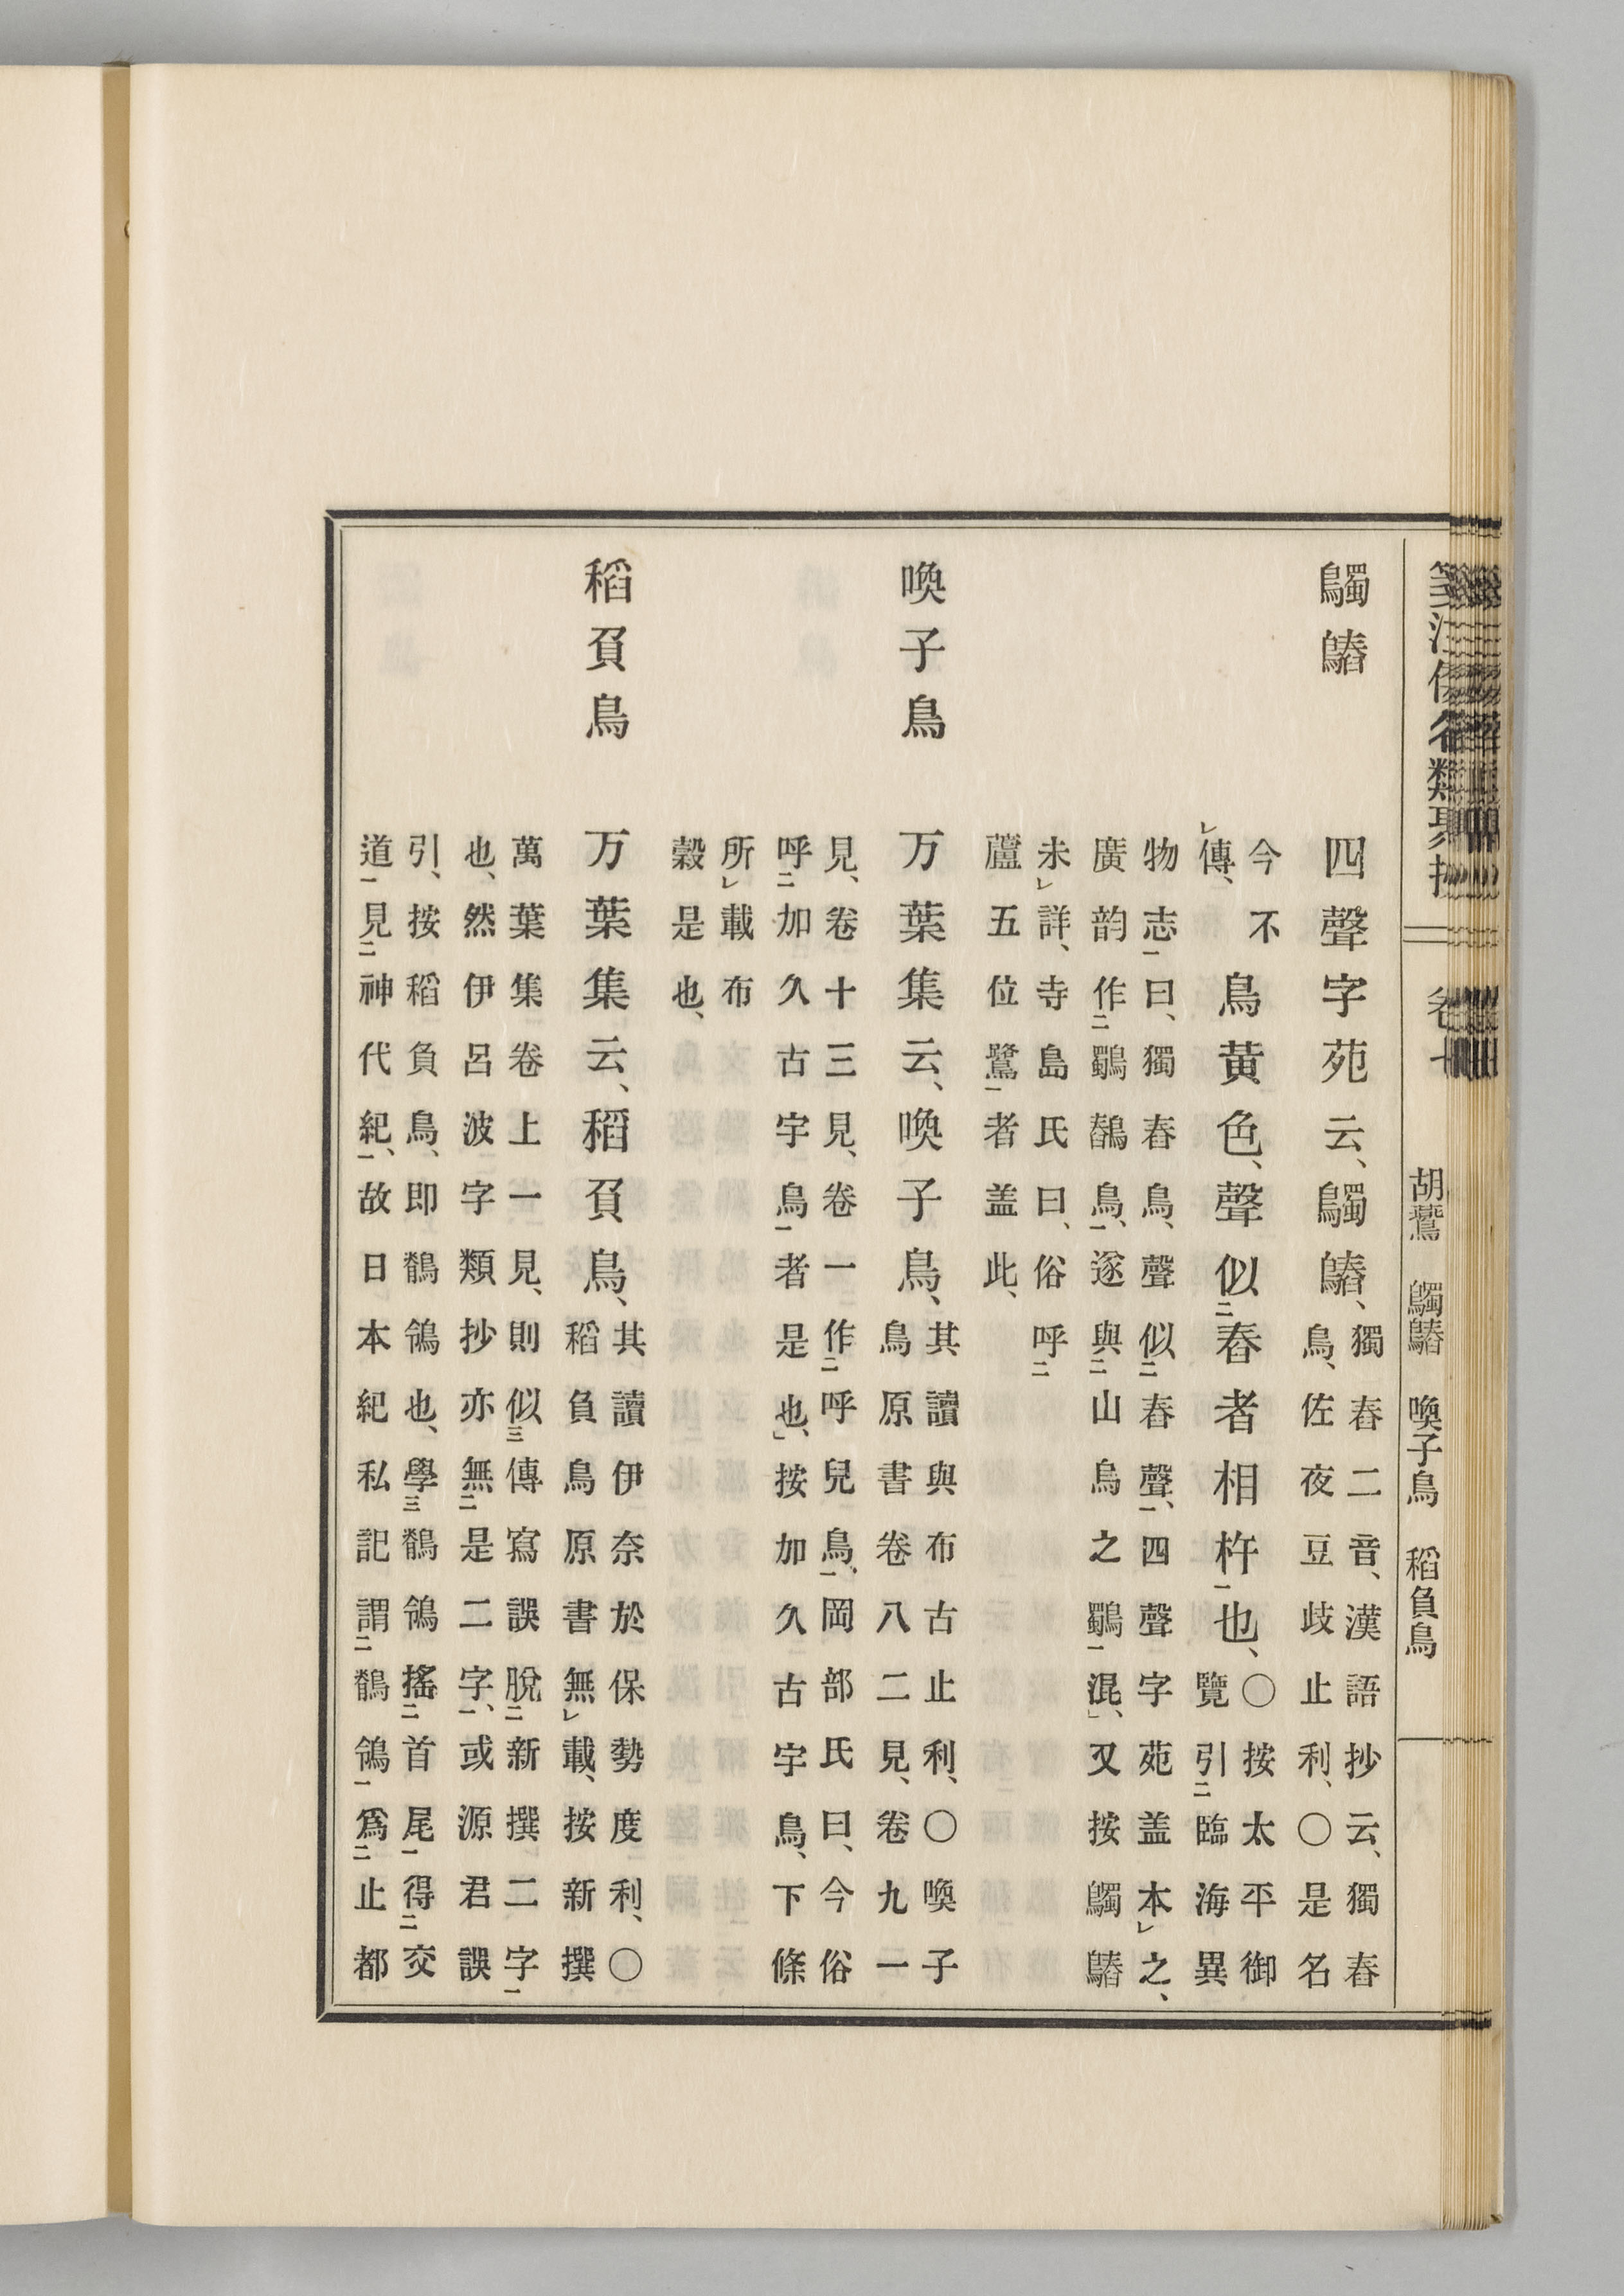 箋注倭名類聚抄 卷七 胡鷰 鸀⿰鳥舂 喚子鳥 稻負鳥
鸀⿰鳥舂 四聲字苑云、鸀⿰鳥舂、
獨舂二音、漢語抄云、獨舂
鳥、佐夜豆歧止利、〇是名
今不
レ傳、
鳥黄色、聲似二舂者相杵一也、
〇按太平御
覽引二臨海異
物志一曰、獨舂鳥、聲似二舂聲一、四聲字苑盖本レ之、
廣韵作二⿰蜀鳥⿰舂鳥鳥一、遂與二山烏之⿰蜀鳥一混、又按鸀⿰鳥舂
未レ詳、寺島氏曰、俗呼二
蘆五位鷺一者盖此、
喚子鳥 万葉集云、喚子鳥、
其讀與布古止利、〇喚子
鳥原書卷八二見、卷九一
見、卷十三見、卷一作二呼兒鳥一、岡部氏曰、今俗
呼二加久古宇鳥一者是也、按加久古宇鳥、下條
所レ載布
穀是也、
稻負鳥 万葉集云、稻負鳥、
其讀伊奈於保勢度利、〇
稻負鳥原書無レ載、按新撰
萬葉集卷上一見、則似三傳寫誤脫二新撰二字一
也、然伊呂波字類抄亦無二是二字一、或源君誤
引、按稻負鳥、即鶺鴒也、學三鶺鴒搖二首尾一得二交
道一見二神代紀一、故日本紀私記謂二鶺鴒一爲二止都